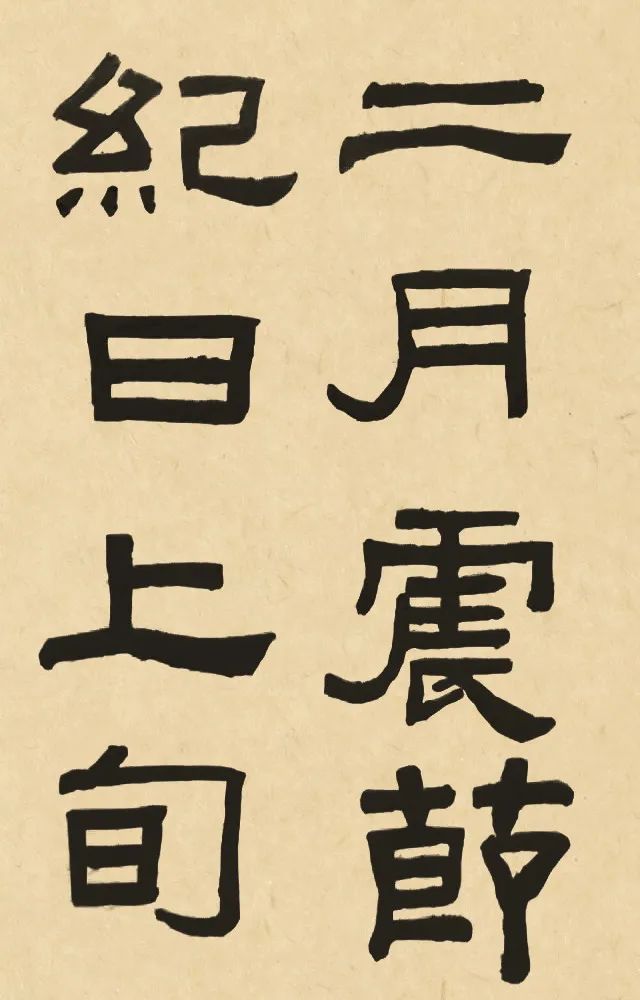 二月震節
紀日上旬